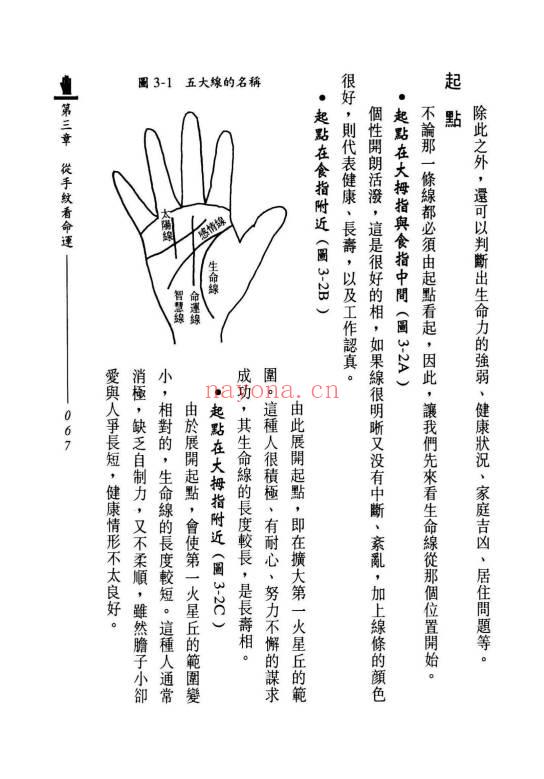 除此之外，還可以判斷出生命力的強弱、健康狀況、家庭吉凶、居住問題等。
起點
不論那一條線都必須由起點看起，因此，讓我們先來看生命線從那個位置開始。
• 起點在大拇指與食指中間（圖3-2A）
個性開朗活潑，這是很好的相，如果線很明晰又没有中斷、紊亂，加上線條的顏色
很好，則代表健康、長壽，以及工作認真。
• 起點在食指附近（圖3-2B）
由此展開起點，即在擴大第一火星丘的範
圍。這種人很積極、有耐心、努力不懈的謀求
成功，其生命線的長度較長，是長壽相。
• 起點在大拇指附近（圖3-2C）
由於展開起點，會使第一火星丘的範圍變
小，相對的，生命線的長度較短。這種人通常
消極，缺乏自制力，又不柔順，雖然膽子小卻
愛與人爭長短，健康情形不太良好。
圖3-1 五大線的名稱
太陽線
感情線
生命線
命運線
智慧線
第三章 從手紋看命運
067
nayona.cn